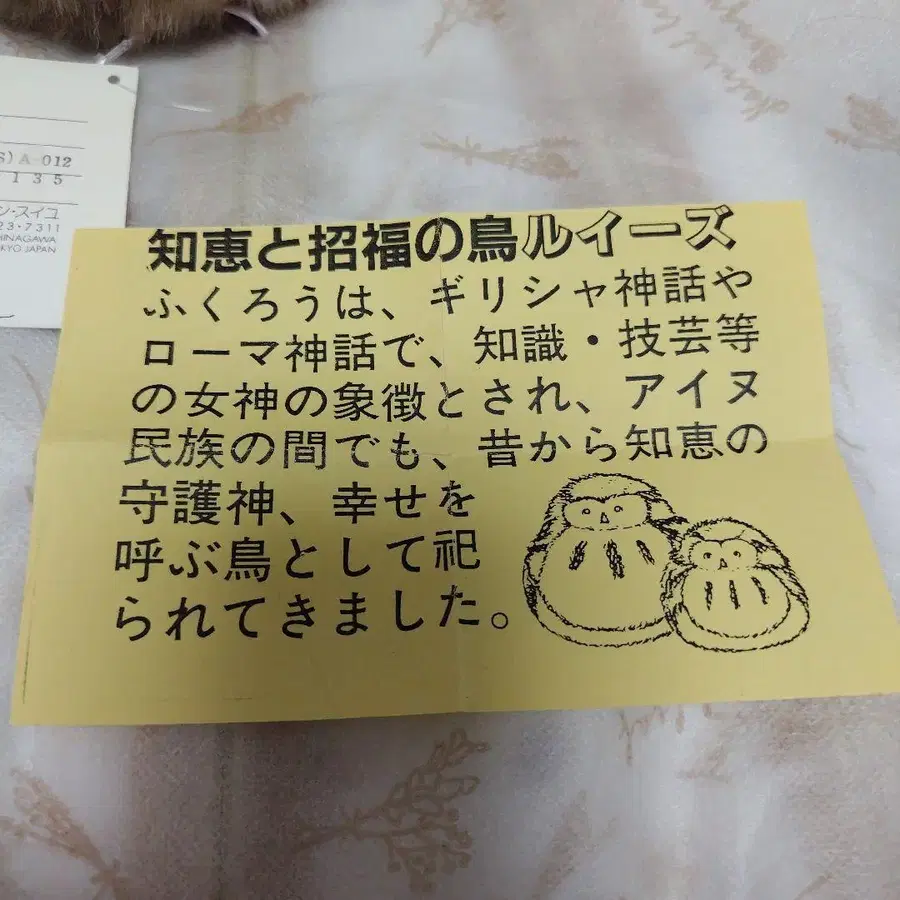 S) A-012
1 3 5
ン・スイユ
23・7311
HINAGAWA
KYO JAPAN
知恵と招福の鳥ルイーズ
ふくろうは、ギリシャ神話や
ローマ神話で、知識・技芸等
の女神の象徴とされ、アイヌ
民族の間でも、昔から知恵の
守護神、幸せを
呼ぶ鳥として祀
られてきました。